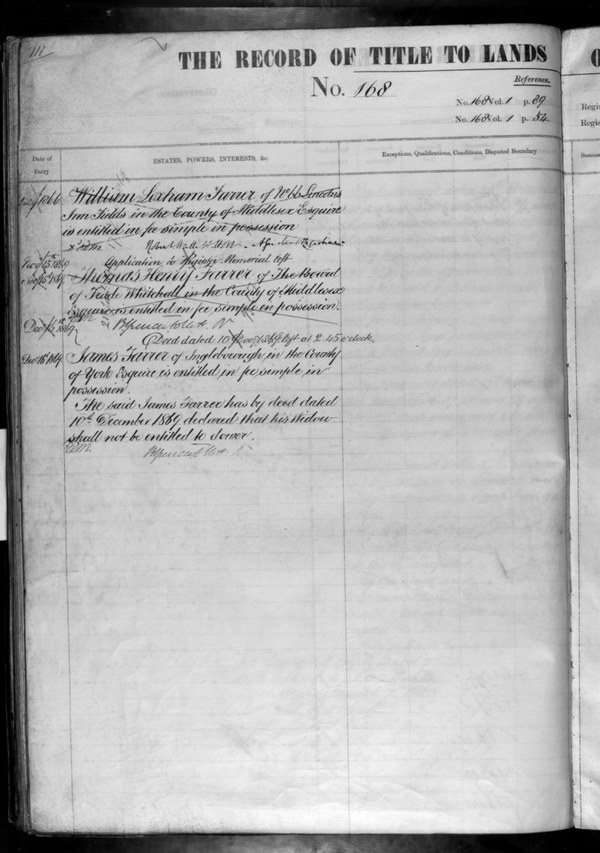 111
THE RECORD OF TITLE TO LANDS
No. 168
Reference.
No. 168 Vol. 1 p. 89
No. 168 Vol. 1 p. 54
Date of Entry
ESTATES, POWERS, INTERESTS, &c
Exceptions, Qualifications, Conditions, Disputed Boundary
1866 William Loxham Farrer of No. 66 Lincolns
Inn Fields in the County of Middlesex Esquire
is entitled in fee simple in possession
Nov 15th 1869 Application to Register Memorial left
Nov 15th 1869 Thomas Henry Farrer of The Board
of Trade Whitehall in the County of Middlesex
Esquire is entitled in fee simple in possession.
Dec 15th 1869
Deed dated 10 Dec 1869 left at 2.45 o'clock
Dec 15th 1869 James Farrer of Ingleborough in the County
of York Esquire is entitled in fee simple in
possession.
The said James Farrer has by deed dated
10th December 1869 declared that his Widow
shall not be entitled to dower.
O
Regis
Regis